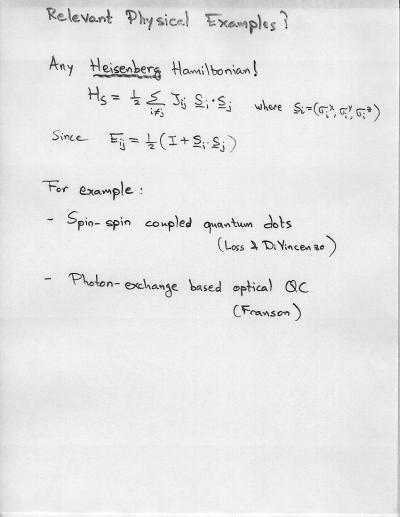 Relevant Physical Examples?
Any Heisenberg Hamiltonian!
H_S = 1/2 Σ_{i≠j} J_ij S_i · S_j where S_i = (σ_i^x, σ_i^y, σ_i^z)
Since E_ij = 1/2 (I + S_i · S_j)
For example:
- Spin-spin coupled quantum dots
(Loss & DiVincenzo)
- Photon-exchange based optical QC
(Franson)